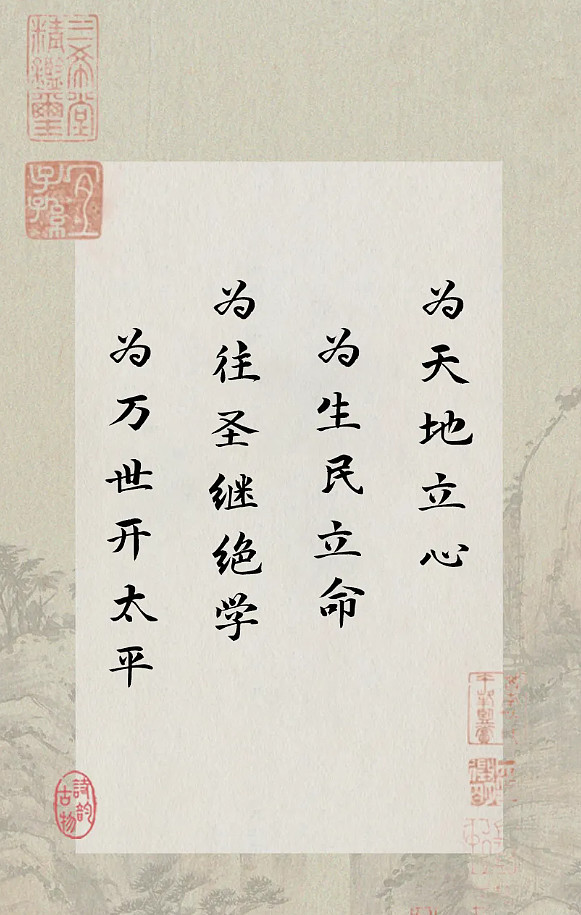 为天地立心
为生民立命
为往圣继绝学
为万世开太平
三希堂
精鉴玺
宜
子孙
詩韵
古物